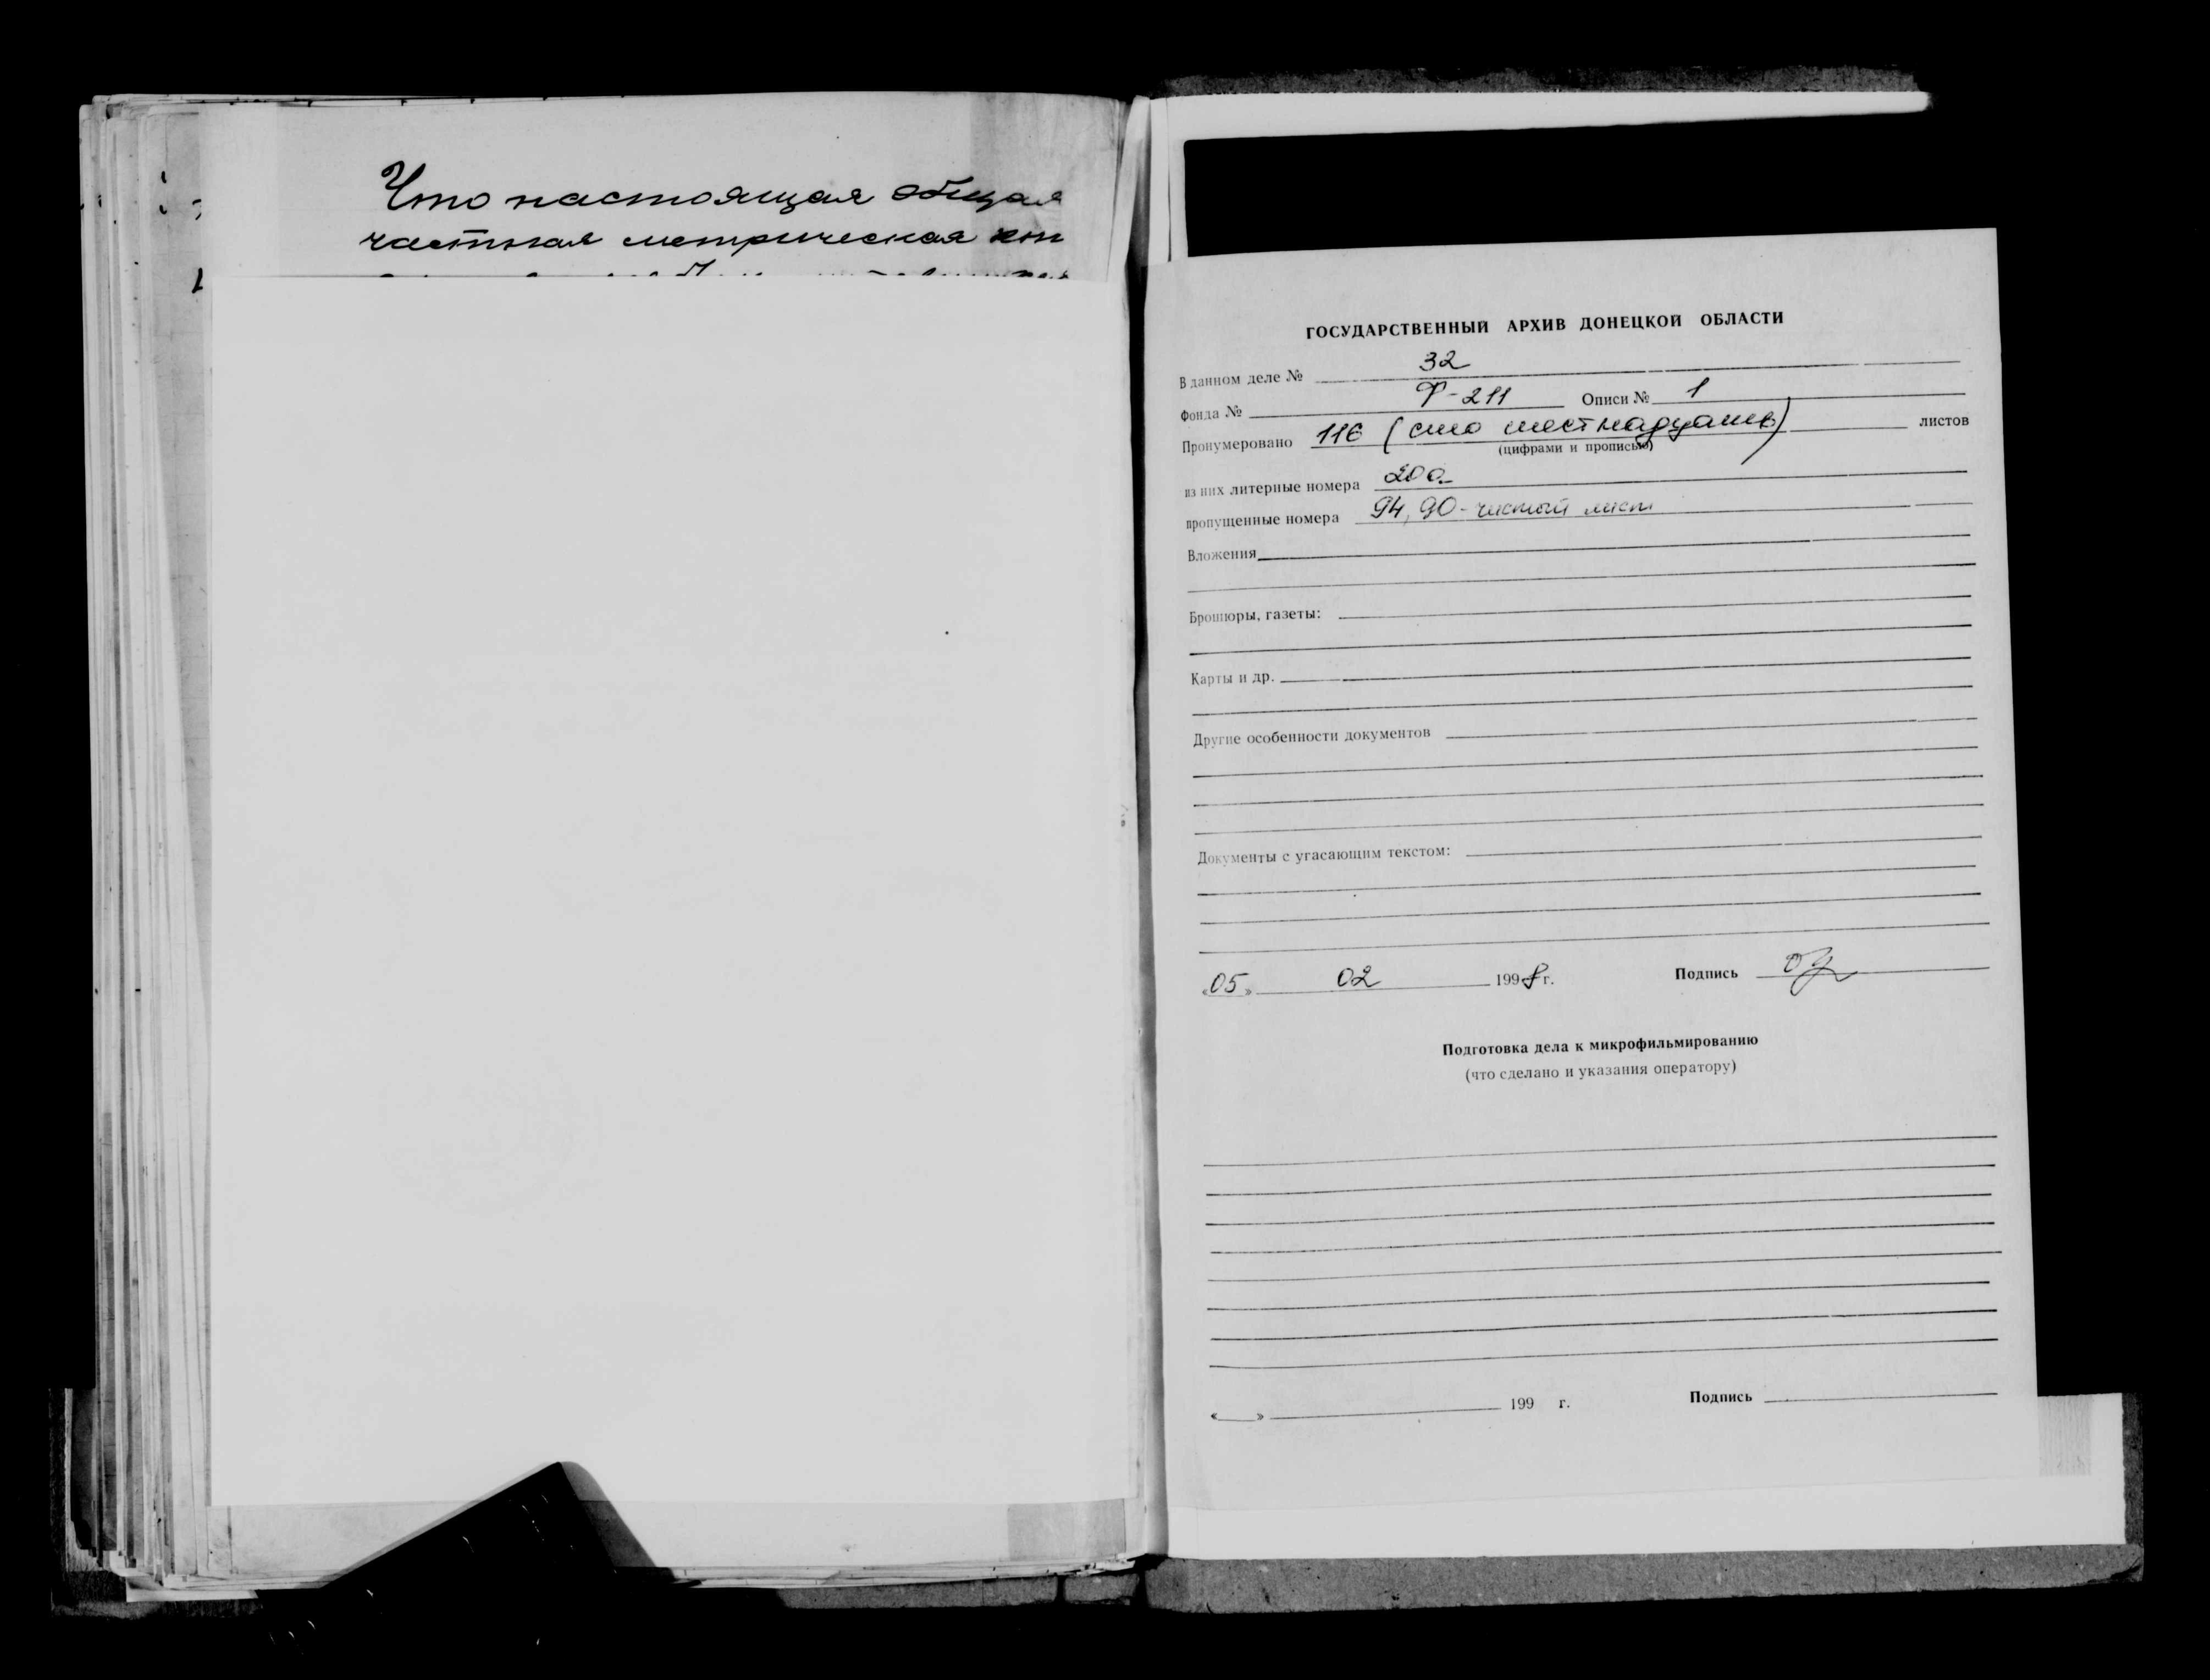 Что настоящая общая
частная метрическая кни
ГОСУДАРСТВЕННЫЙ АРХИВ ДОНЕЦКОЙ ОБЛАСТИ
В данном деле № 32
Фонда № Ф-211 Описи № 1
Пронумеровано 116 (сто шестнадцать) листов
(цифрами и прописью)
из них литерные номера 20а
пропущенные номера 94, 90 - чистый лист
Вложения
Брошюры, газеты:
Карты и др.
Другие особенности документов
Документы с угасающим текстом:
«05» 02 1998 г. Подпись
Подготовка дела к микрофильмированию
(что сделано и указания оператору)
«___» 199 г. Подпись